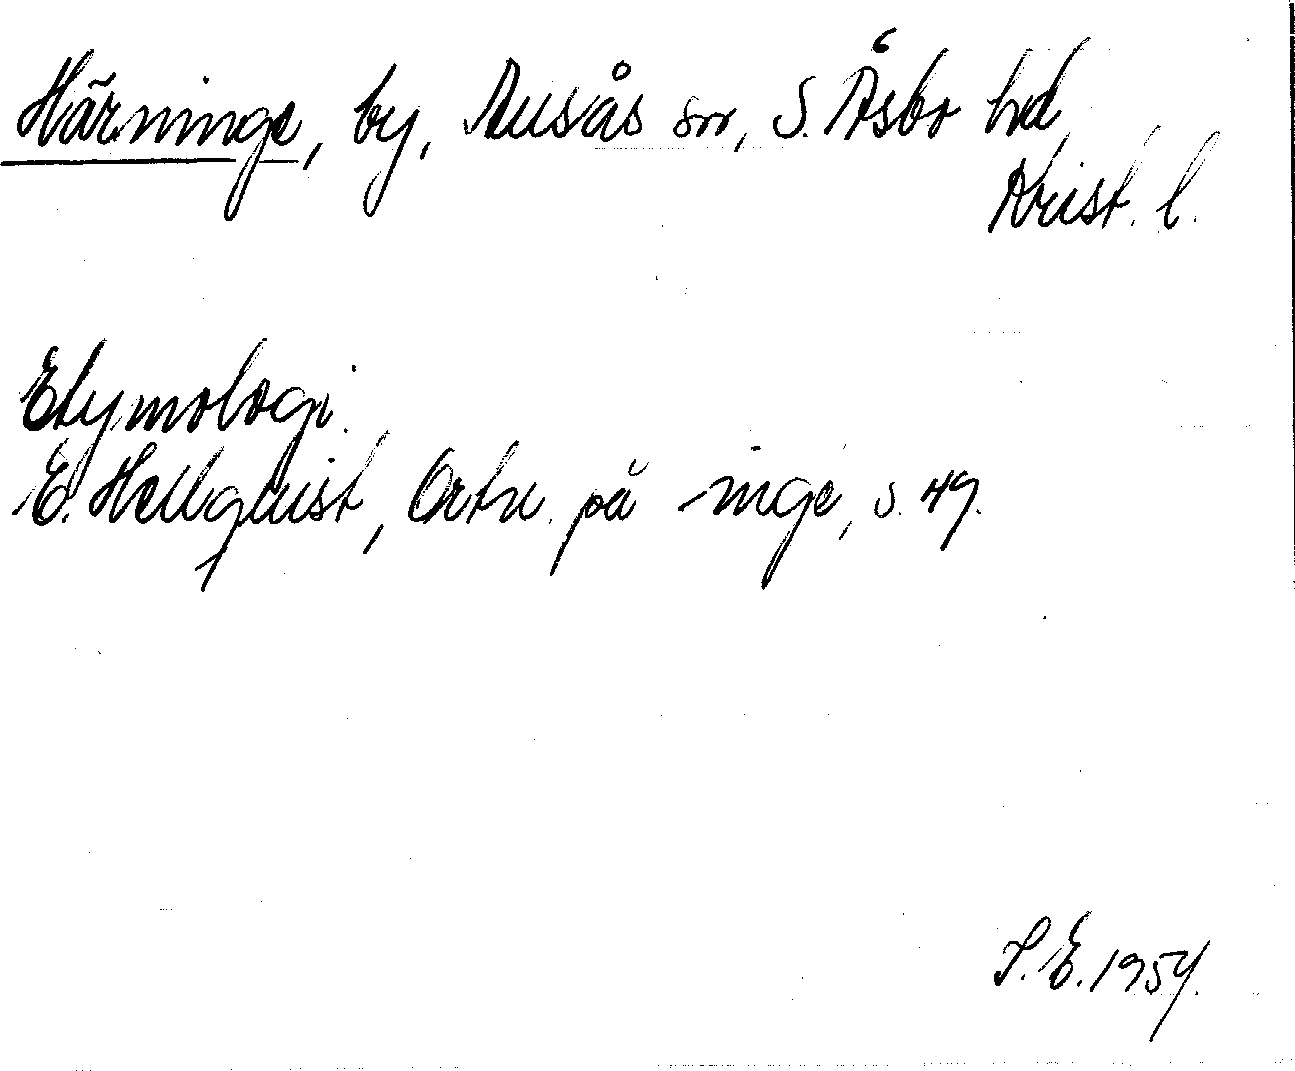 Härninge, by, Ausås sn, S. Åsbo hd,
Krist. l.
Etymologi.
E. Hellquist, Ortn. på -inge, s. 49.
S. E. 1954.